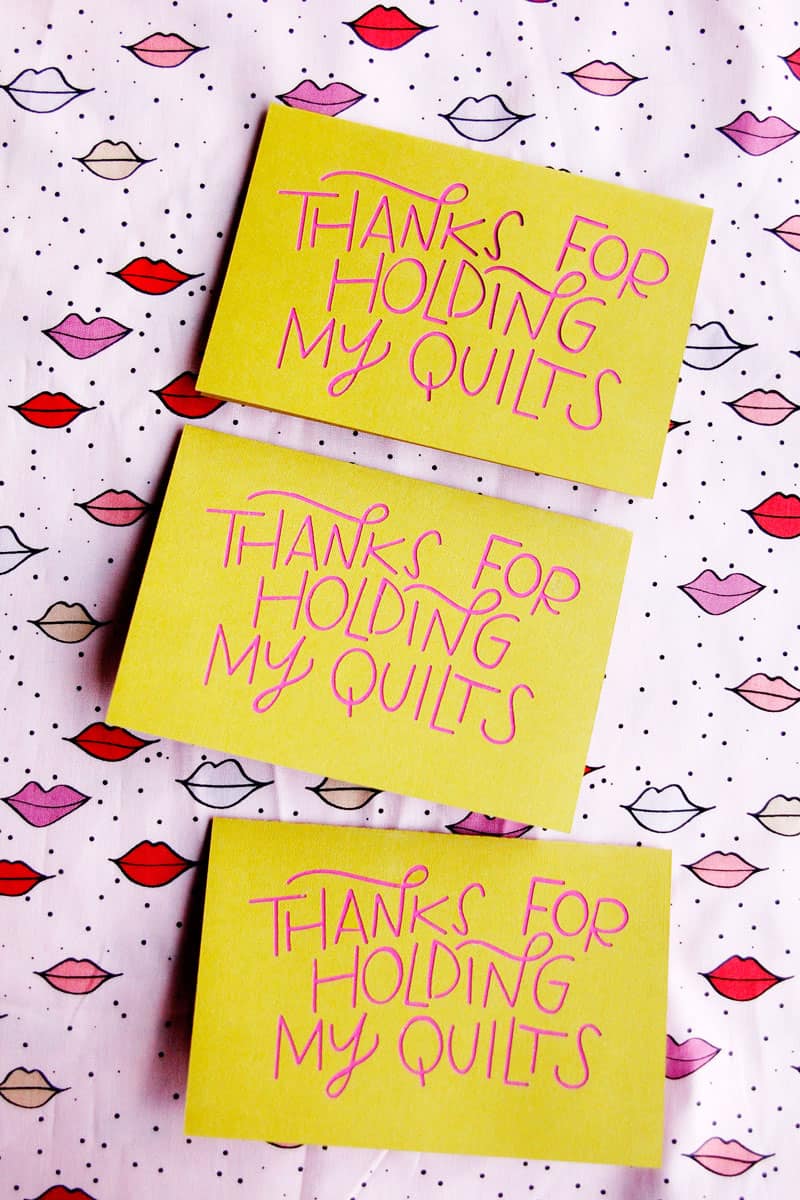 THANKS FOR
HOLDING
MY QUILTS
THANKS FOR
HOLDING
MY QUILTS
THANKS FOR
HOLDING
MY QUILTS